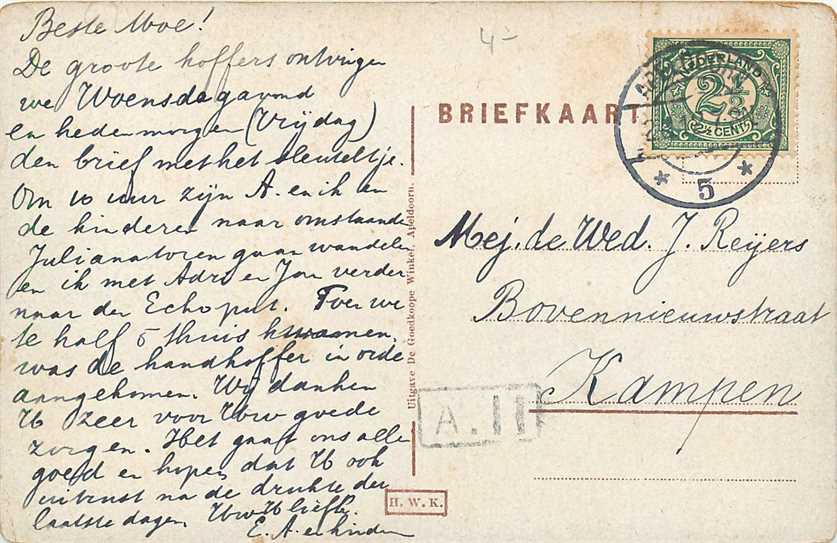 Beste Moe!
De groote koffers ontvingen
we Woensdagavond
en hedenmorgen (Vrijdag)
den brief met het sleuteltje.
Om 10 uur zijn A. en ik en
de kinderen naar omstaande
Julianatoren gaan wandelen
en ik met Adri en Jan verder
naar den Echoput. Toen we
te half 5 thuis kwamen,
was de handkoffer in orde
aangekomen. Wij danken
U zeer voor Uw goede
zorgen. Het gaat ons alle
goed en hopen dat U ook
uitrust na de drukte der
laatste dagen. Uw U liefh.
E. A. en kinderen
4-
BRIEFKAART.
NEDERLAND
2½
2½ CENT
5
Mej. de Wed. J. Reijers
Bovennieuwstraat
Kampen
A.II
Uitgave De Goedkoope Winkel, Apeldoorn.
H. W. K.